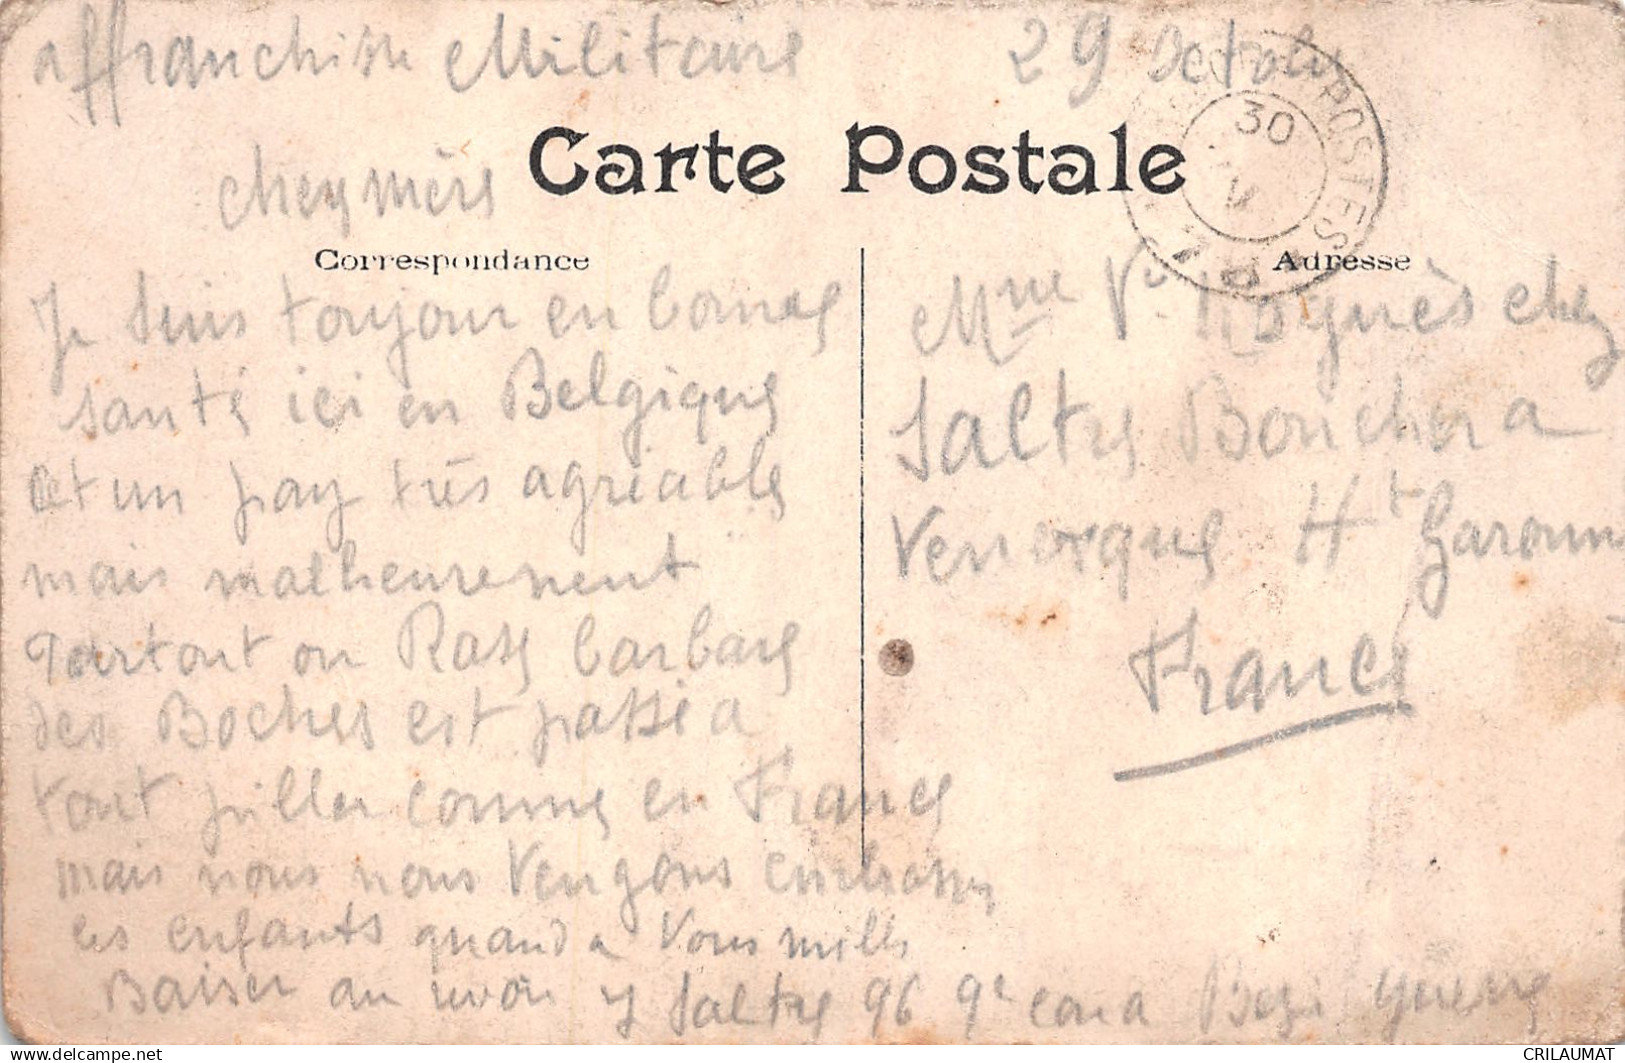 affranchise Militaire 29 octobre
30
POSTES
Carte Postale
chers mère
Correspondance
Je suis toujour en bonne
santé ici en Belgique
et un pay très agréable
mais malheurement
Partout ou Rase barbare
des Boches est passé a
tout piller comme en France
mais nous nous Vengons embrasse
les enfants quand a Vous mille
Baiser au revoir Saltre 96 9e
Adresse
Mme Ve Roguès chez
Saltre Boucher a
Venerque Hte Garonne
France
CRILAUMAT